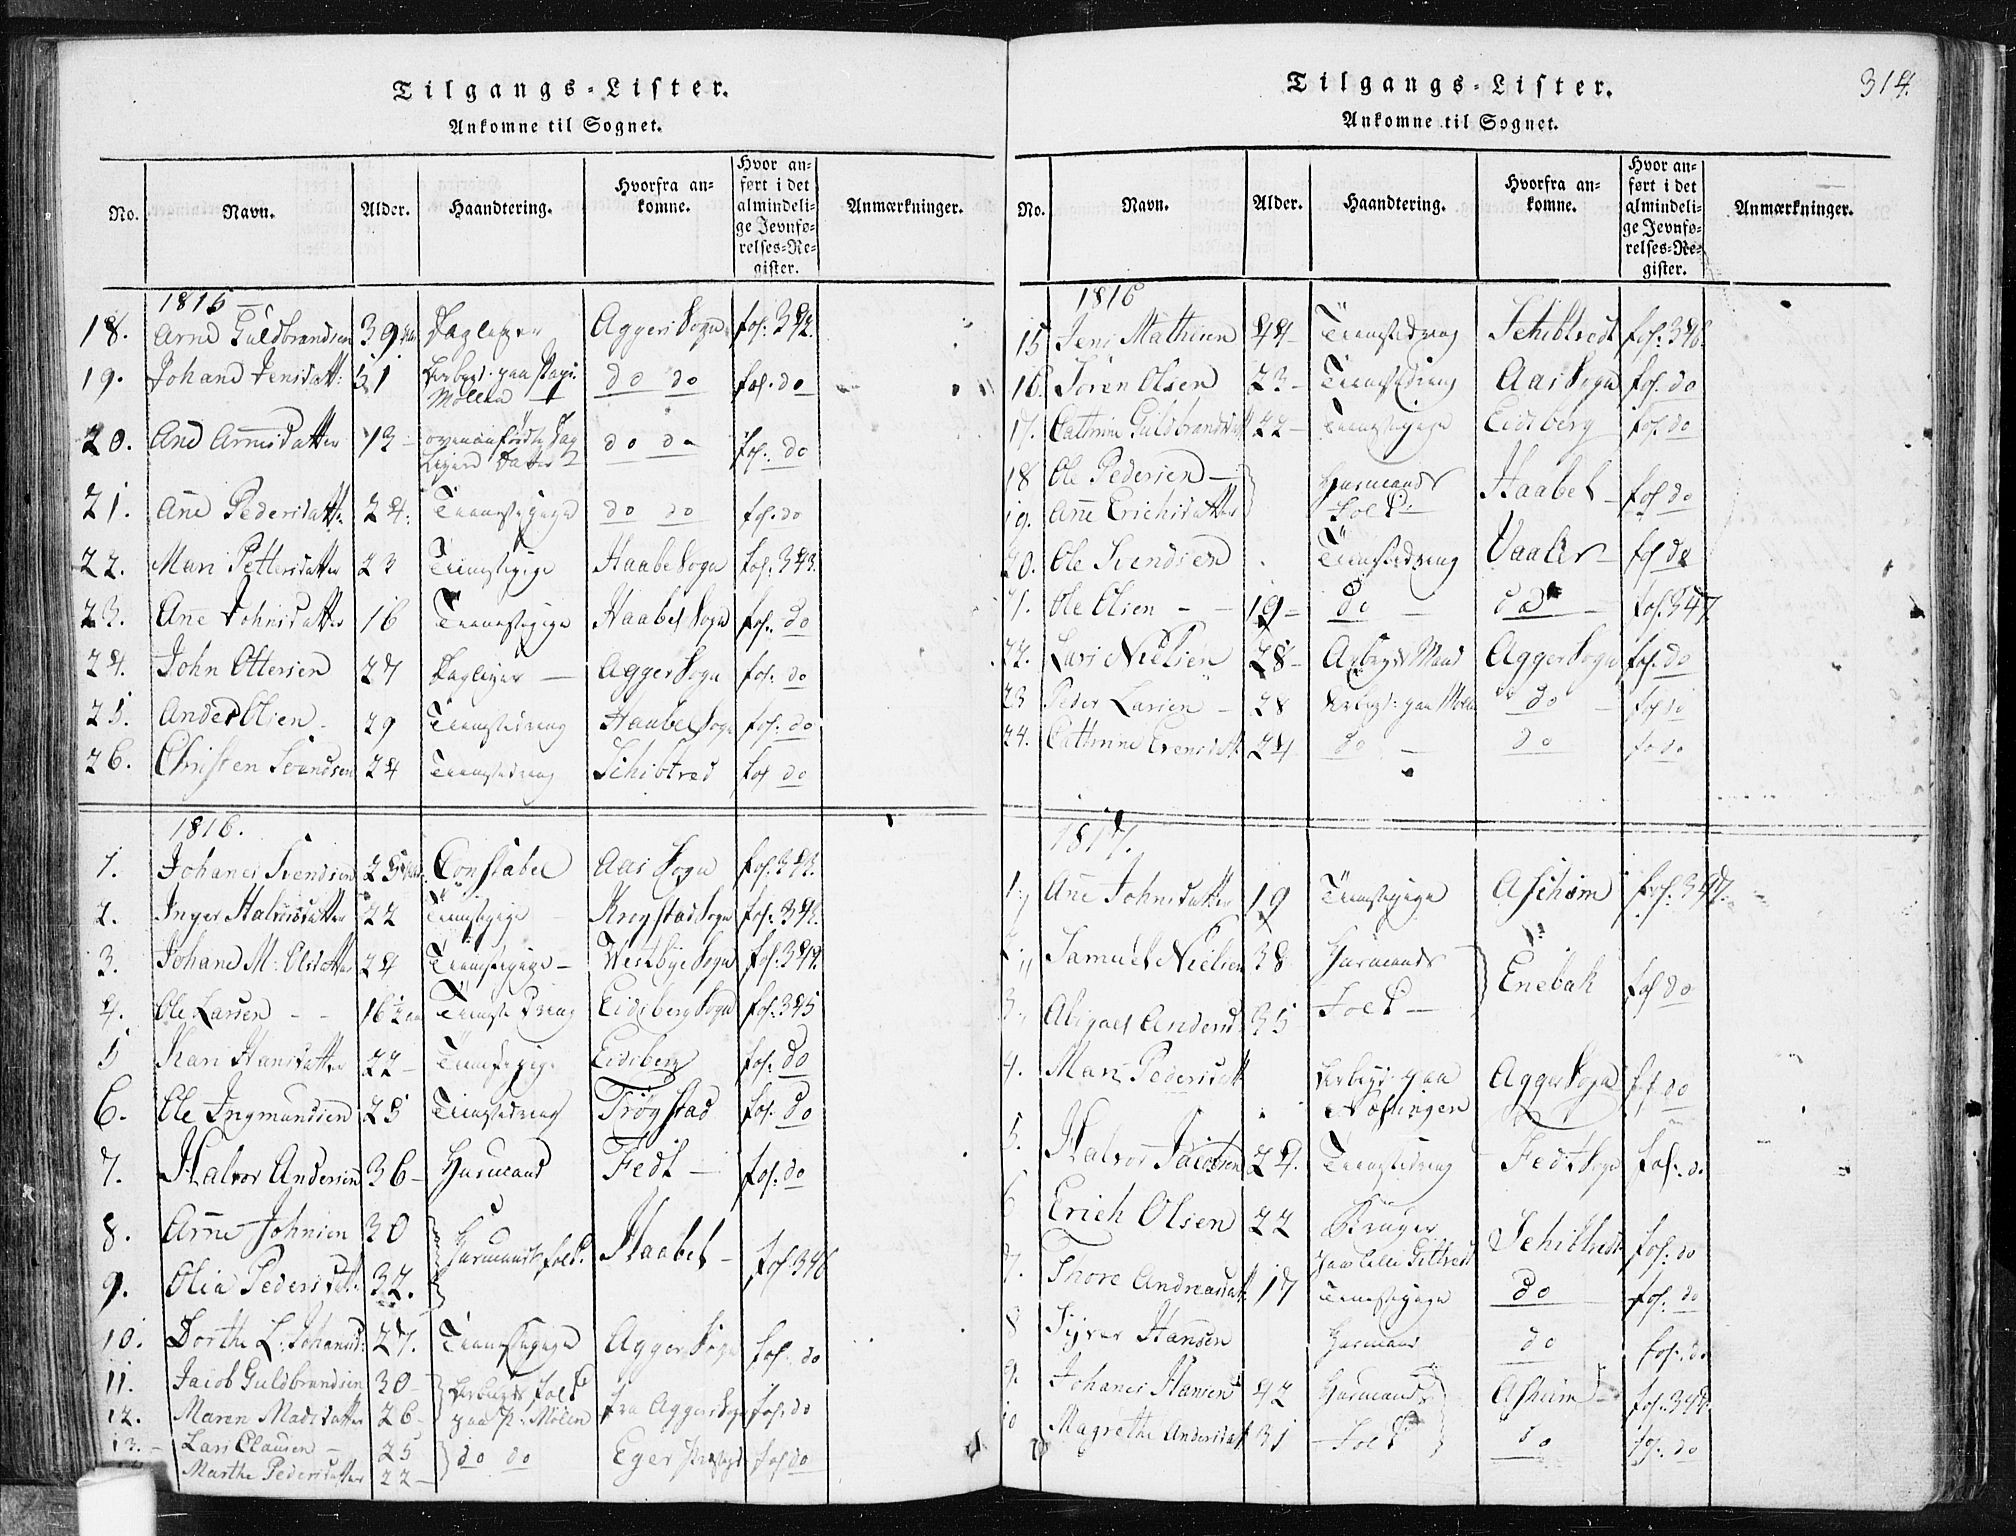 Tilgangs-Lister.
Ankomne til Sognet.
No. Navn. Alder. Haandtering. Hvorfra ankomne. Hvor anført i det almindelige Jevnførelses-Register. Anmærkninger.
1815
18. Arne Guldbrandsen 39 Aggers Sogn fol: 342.
19. Johane Jensdatt: 51 do do fol. do
20. Ane Arnesdatter 13 do do fol. do
21. Ane Pedersdatter 24. Tienestepige do do fol. do
22. Mari Pettersdatter 23 Tienestepige Haabel Sogn fol. 343.
23. Ane Johnsdatter 16 Tienestepige Haabel Sogn fol. do
24. John Ottersen 27 Aggers Sogn fol. do
25. Anders Olsen 29 Tienestedreng Haabel Sogn fol. do
26. Christen Svendsen 24 Tienestedreng Schibtved fol do
1816.
1. Johanes Svendsen Constabel Aas Sogn fol. 343.
2. Inger Halvorsdatter 22 Tienestepige Krogstad Sogn
3. Johane M: Olsdatter 24 Tienestepige Westbye Sogn fol. 344.
4. Ole Larsen 16½ Tieneste Dreng Eidsberg Sogn fol. 345
5 Kari Hansdatter 22 Tienestepige Eidsberg fol. do
6. Ole Ingmundsen 25 Tienestedreng Trøgstad fol. do
7. Halvor Andersen 36 Huusmand Fedt fol. do
8. Arne Johnsen 30 Huusmands folk Haabel fol 346
9. Olia Pedersdatt: 32.
10. Dorthe L: Johansd: 27. Tienestepige Aggers Sogn fol. do
11. Jacob Guldbrandsen 30 Arbeids folk fra Aggers Sogn fol. do
12. Maren Madsdatter 26 paa Møllen
13. Lars Clausen 25 do do Eger fol do
Marthe Pedersdatter 22
Tilgangs-Lister.
Ankomne til Sognet.
314.
No. Navn. Alder. Haandtering. Hvorfra ankomne. Hvor anført i det almindelige Jevnførelses-Register. Anmærkninger.
1816
15 Jens Mathisen 44 Tienestedreng Schibtvedt fol. 346.
16. Søren Olsen 23 Tienestedreng Aas Sogn fol. do
17. Cathrine Guldbrandsdatt 22 Tienestepige Eidsberg fol. do
18 Ole Pedersen Huusmands Haabel fol do
19. Ane Erichsdatter Folk
20. Ole Svendsen Tienestedreng Vaaler fol do
21. Ole Olsen 19 do do fol. 347
22. Lars Nielsen 28 Arbeids Mand Aggers Sogn fol. do
23 Peder Larsen 28 Arbeids: paa Møllen do fol do
24. Cathrine Evensdatt 24 do do fo do
1817.
1. Ane Johnsdatter 19 Tienestepige Aschim fol. 347.
Samuel Nielsen 38 Huusmands Enebak fol do
3. Abigael Andersd 35 Folk
4. Mari Pedersdatt Arbeids: paa Aggers Sogn fol do
5. Halvor Jacobsen 24. Tienestedreng Fedt Sogn fol. do
6 Erich Olsen 22 Schibtvedt fol. do
7. Thore Andreasdatt: 17 Tienestepige do fol. do
8 Syver Hansen Huusmand do fol. do
9. Johanes Hansen 42 Huusmands Ashim fol. 348.
10 Magrethe Andersdatt 31 Folk do fol. do